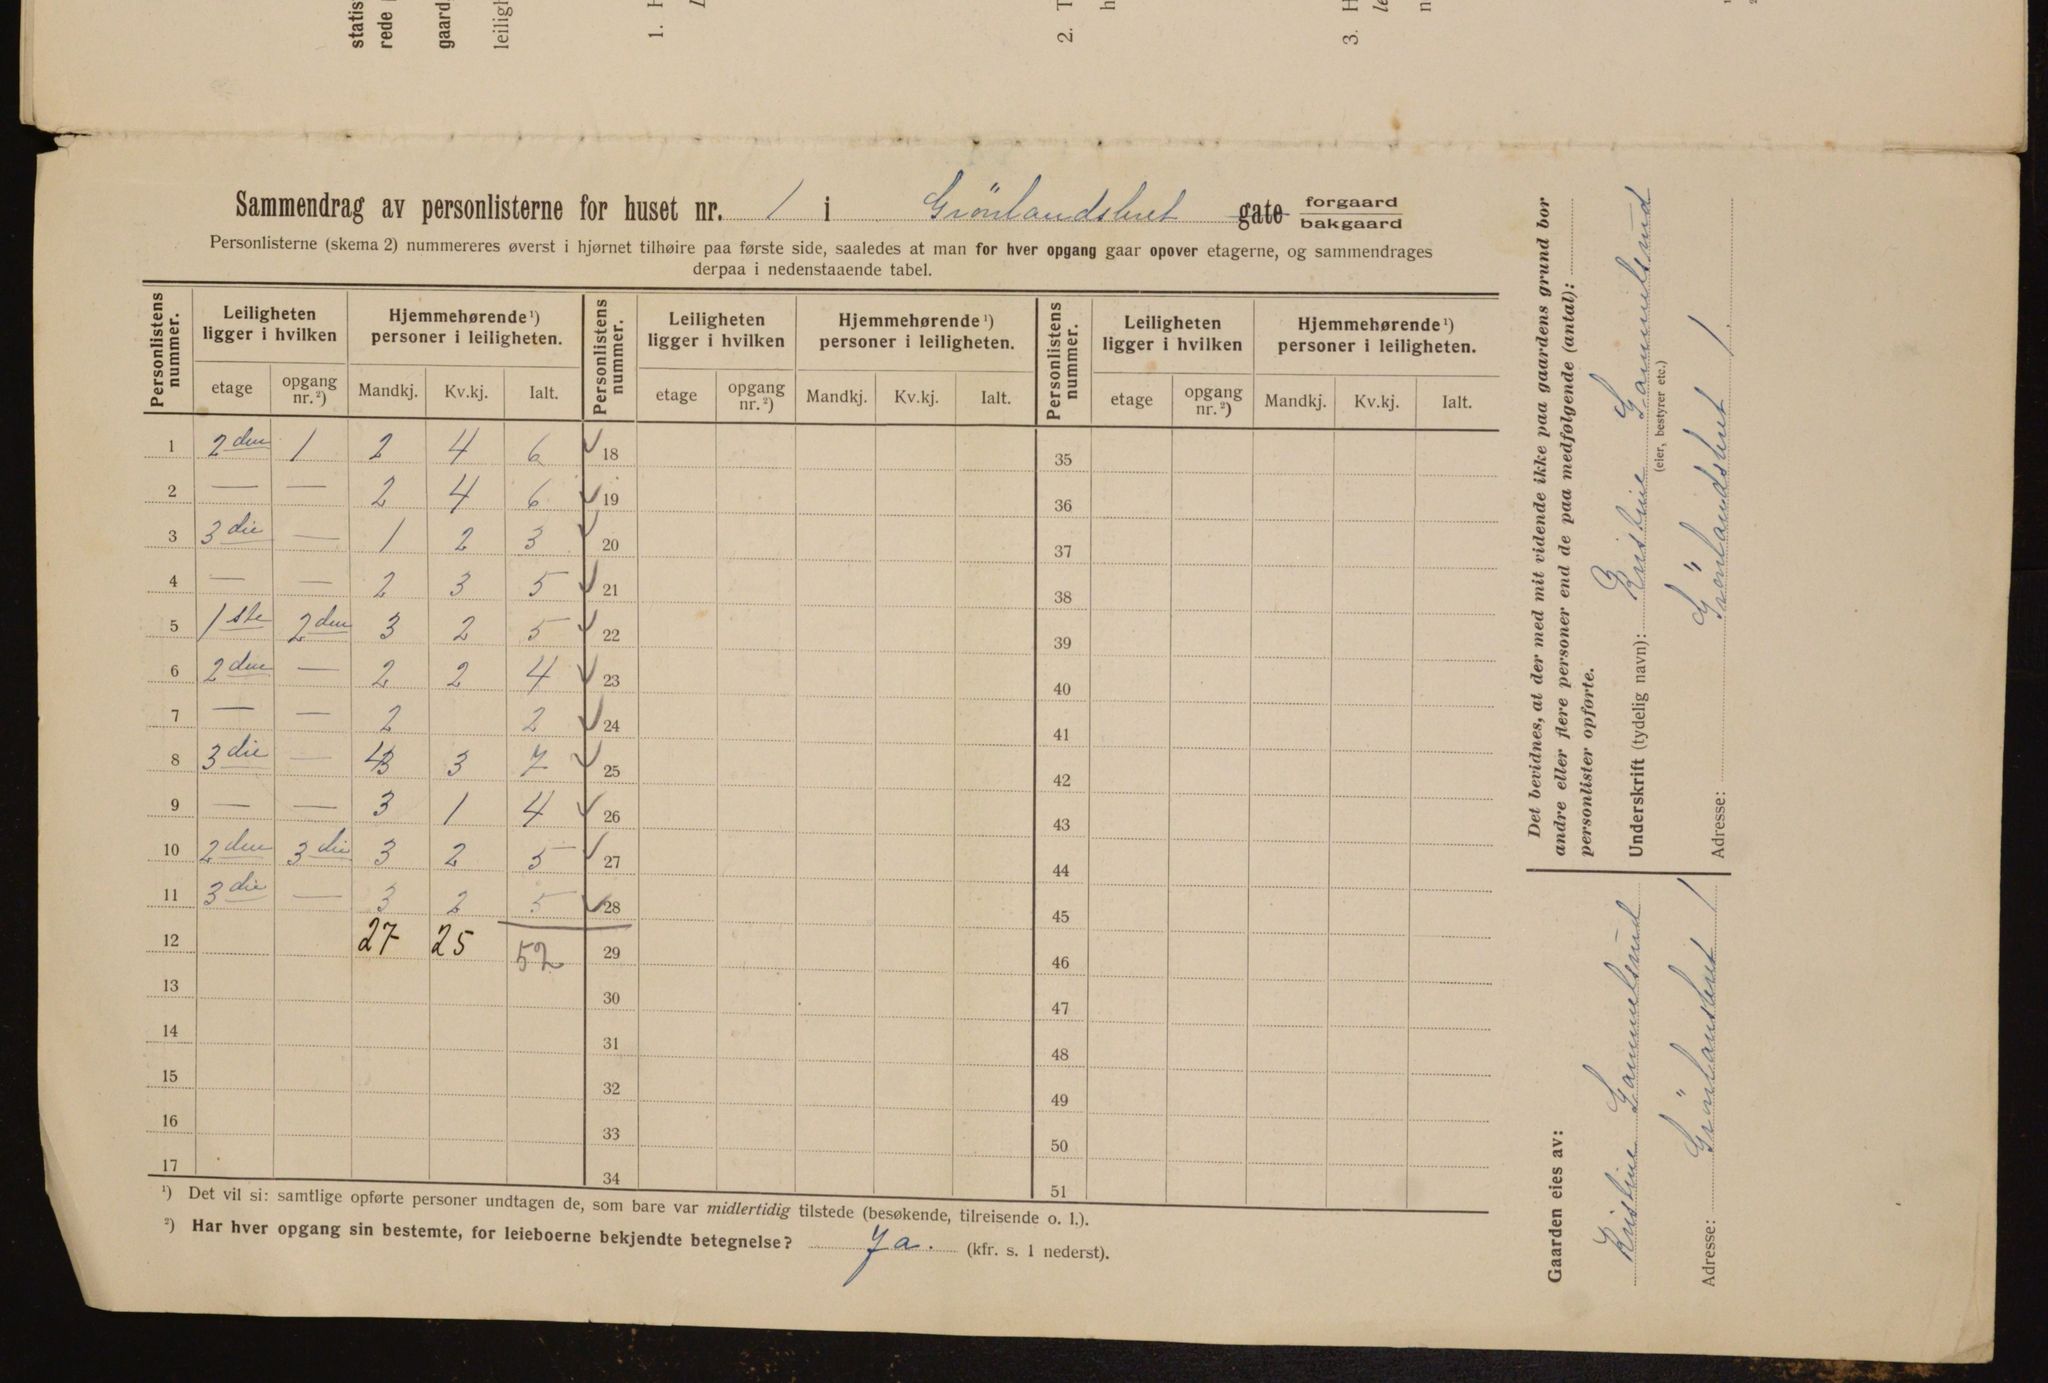 statis
rede
gaard
leilig
1. H
2. T
h
3. H
le
n
Sammendrag av personlisterne for huset nr. 1 i Grönlandsleret gate forgaard
bakgaard
Personlisterne (skema 2) nummereres øverst i hjørnet tilhøire paa første side, saaledes at man for hver opgang gaar opover etagerne, og sammendrages
derpaa i nedenstaaende tabel.
Personlistens nummer. Leiligheten ligger i hvilken Hjemmehørende ¹) personer i leiligheten. Personlistens nummer. Leiligheten ligger i hvilken Hjemmehørende ¹) personer i leiligheten. Personlistens nummer. Leiligheten ligger i hvilken Hjemmehørende ¹) personer i leiligheten.
etage opgang nr.²) Mandkj. Kv.kj. Ialt. etage opgang nr.²) Mandkj. Kv.kj. Ialt. etage opgang nr.²) Mandkj. Kv.kj. Ialt.
1 2den 1 2 4 6 ✓ 18 35
2 — — 2 4 6 ✓ 19 36
3 3die — 1 2 3 ✓ 20 37
4 — — 2 3 5 ✓ 21 38
5 1ste 2den 3 2 5 ✓ 22 39
6 2den — 2 2 4 ✓ 23 40
7 — — 2 2 ✓ 24 41
8 3die — 4 3 7 ✓ 25 42
9 — — 3 1 4 ✓ 26 43
10 2den 3die 3 2 5 ✓ 27 44
11 3die — 3 2 5 ✓ 28 45
12 27 25 52 29 46
13 30 47
14 31 48
15 32 49
16 33 50
17 34 51
¹) Det vil si: samtlige opførte personer undtagen de, som bare var midlertidig tilstede (besøkende, tilreisende o. l.).
²) Har hver opgang sin bestemte, for leieboerne bekjendte betegnelse? Ja. (kfr. s. 1 nederst).
Det bevidnes, at der med mit vidende ikke paa gaardens grund bor
andre eller flere personer end de paa medfølgende (antal):
personlister opførte.
Underskrift (tydelig navn): Kristine Gamnelsrud
(eier, bestyrer etc.)
Adresse: Grönlandsleret 1.
Gaarden eies av:
Kristine Gamnelsrud
Adresse: Grönlansleret 1